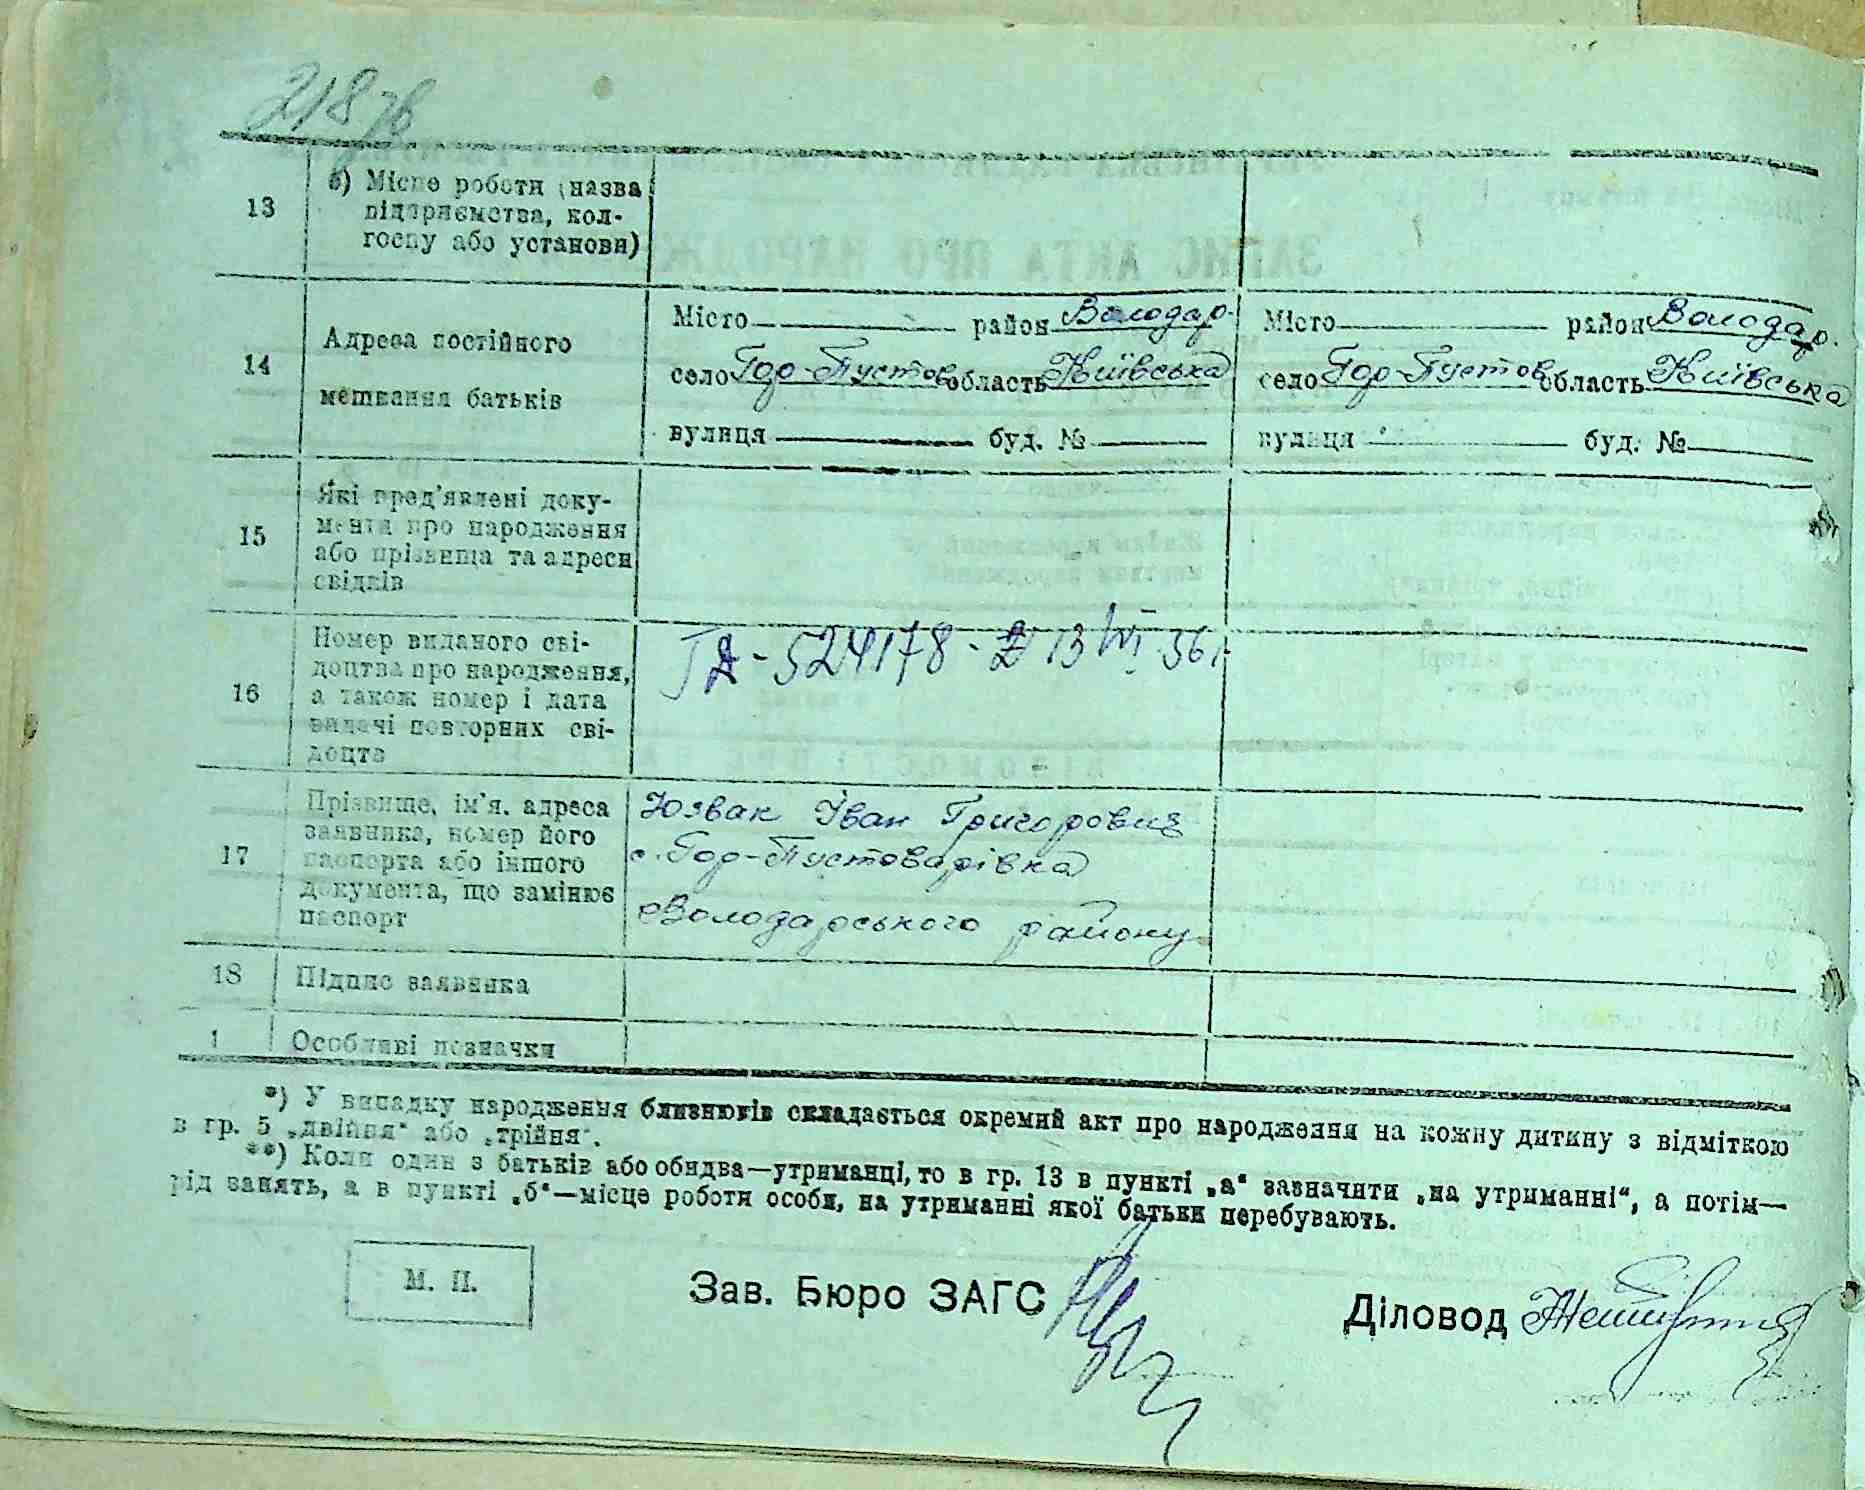 218 зв
13
б) Місце роботи (назва
підприємства, кол-
госпу або установи)
14
Адреса постійного
мешкання батьків
Місто — район Володар.
село Гор-Пустов область Київська
вулиця — буд. № —
Місто — район Володар.
село Гор-Пустов область Київська
вулиця — буд. № —
15
Які пред'явлені доку-
менти про народження
або прізвища та адреси
свідків
16
Номер виданого сві-
доцтва про народження,
а також номер і дата
видачі повторних сві-
доцтв
524178 - 13 VI 56 г.
17
Прізвище, ім'я, адреса
заявника, номер його
паспорта або іншого
документа, що замінює
паспорт
Юзвак Іван Григорович
с. Гор-Пустоварівка
Володарського району
18
Підпис заявника
1
Особливі позначки
*) У випадку народження близнюків складається окремий акт про народження на кожну дитину з відміткою
в гр. 5 „двійня“ або „трійня“.
**) Коли один з батьків або обидва—утриманці, то в гр. 13 в пункті „а“ зазначити „на утриманні“, а потім—
рід занять, а в пункті „б“—місце роботи особи, на утриманні якої батьки перебувають.
М. П.
Зав. Бюро ЗАГС
Діловод